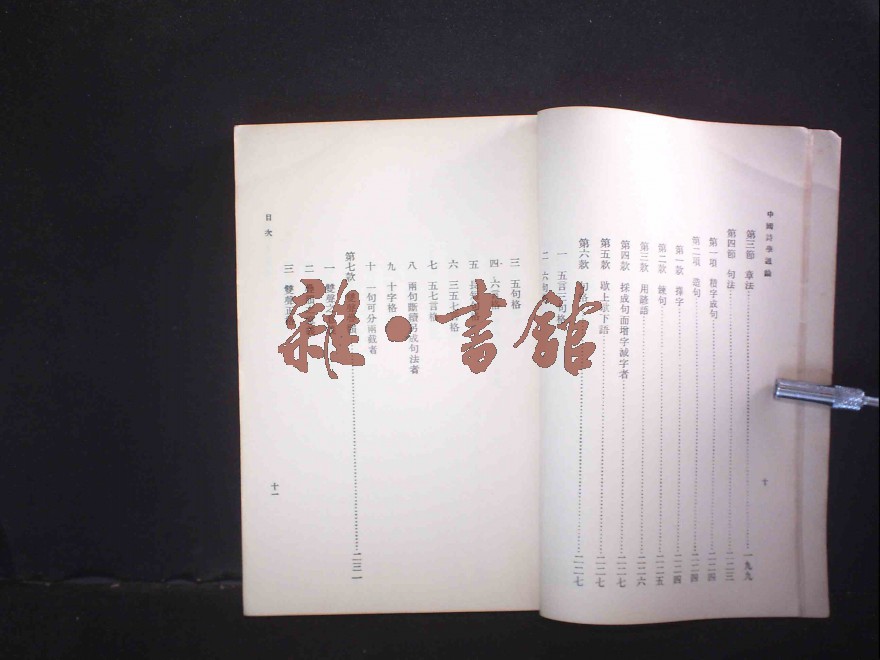 中國詩學通論
第三節 章法 一九九
第四節 句法 二二三
第一項 積字成句 二二四
第二項 造句 二二四
第一款 擇字 二二四
第二款 鍊句 二二五
第三款 用謎語 二二六
第四款 採成句而增字減字者 二二七
第五款 歇上歇下語 二二七
第六款 二二七
一 五言三句格
二
十
目次
三 五句格
四 六
五 長
六 三五七 格
七 五七言格
八 兩句斷續另成句法者
九 十字格
十 一句可分兩截者
第七款 二三一
一 雙聲
二
三 雙聲
十一
雜·書館